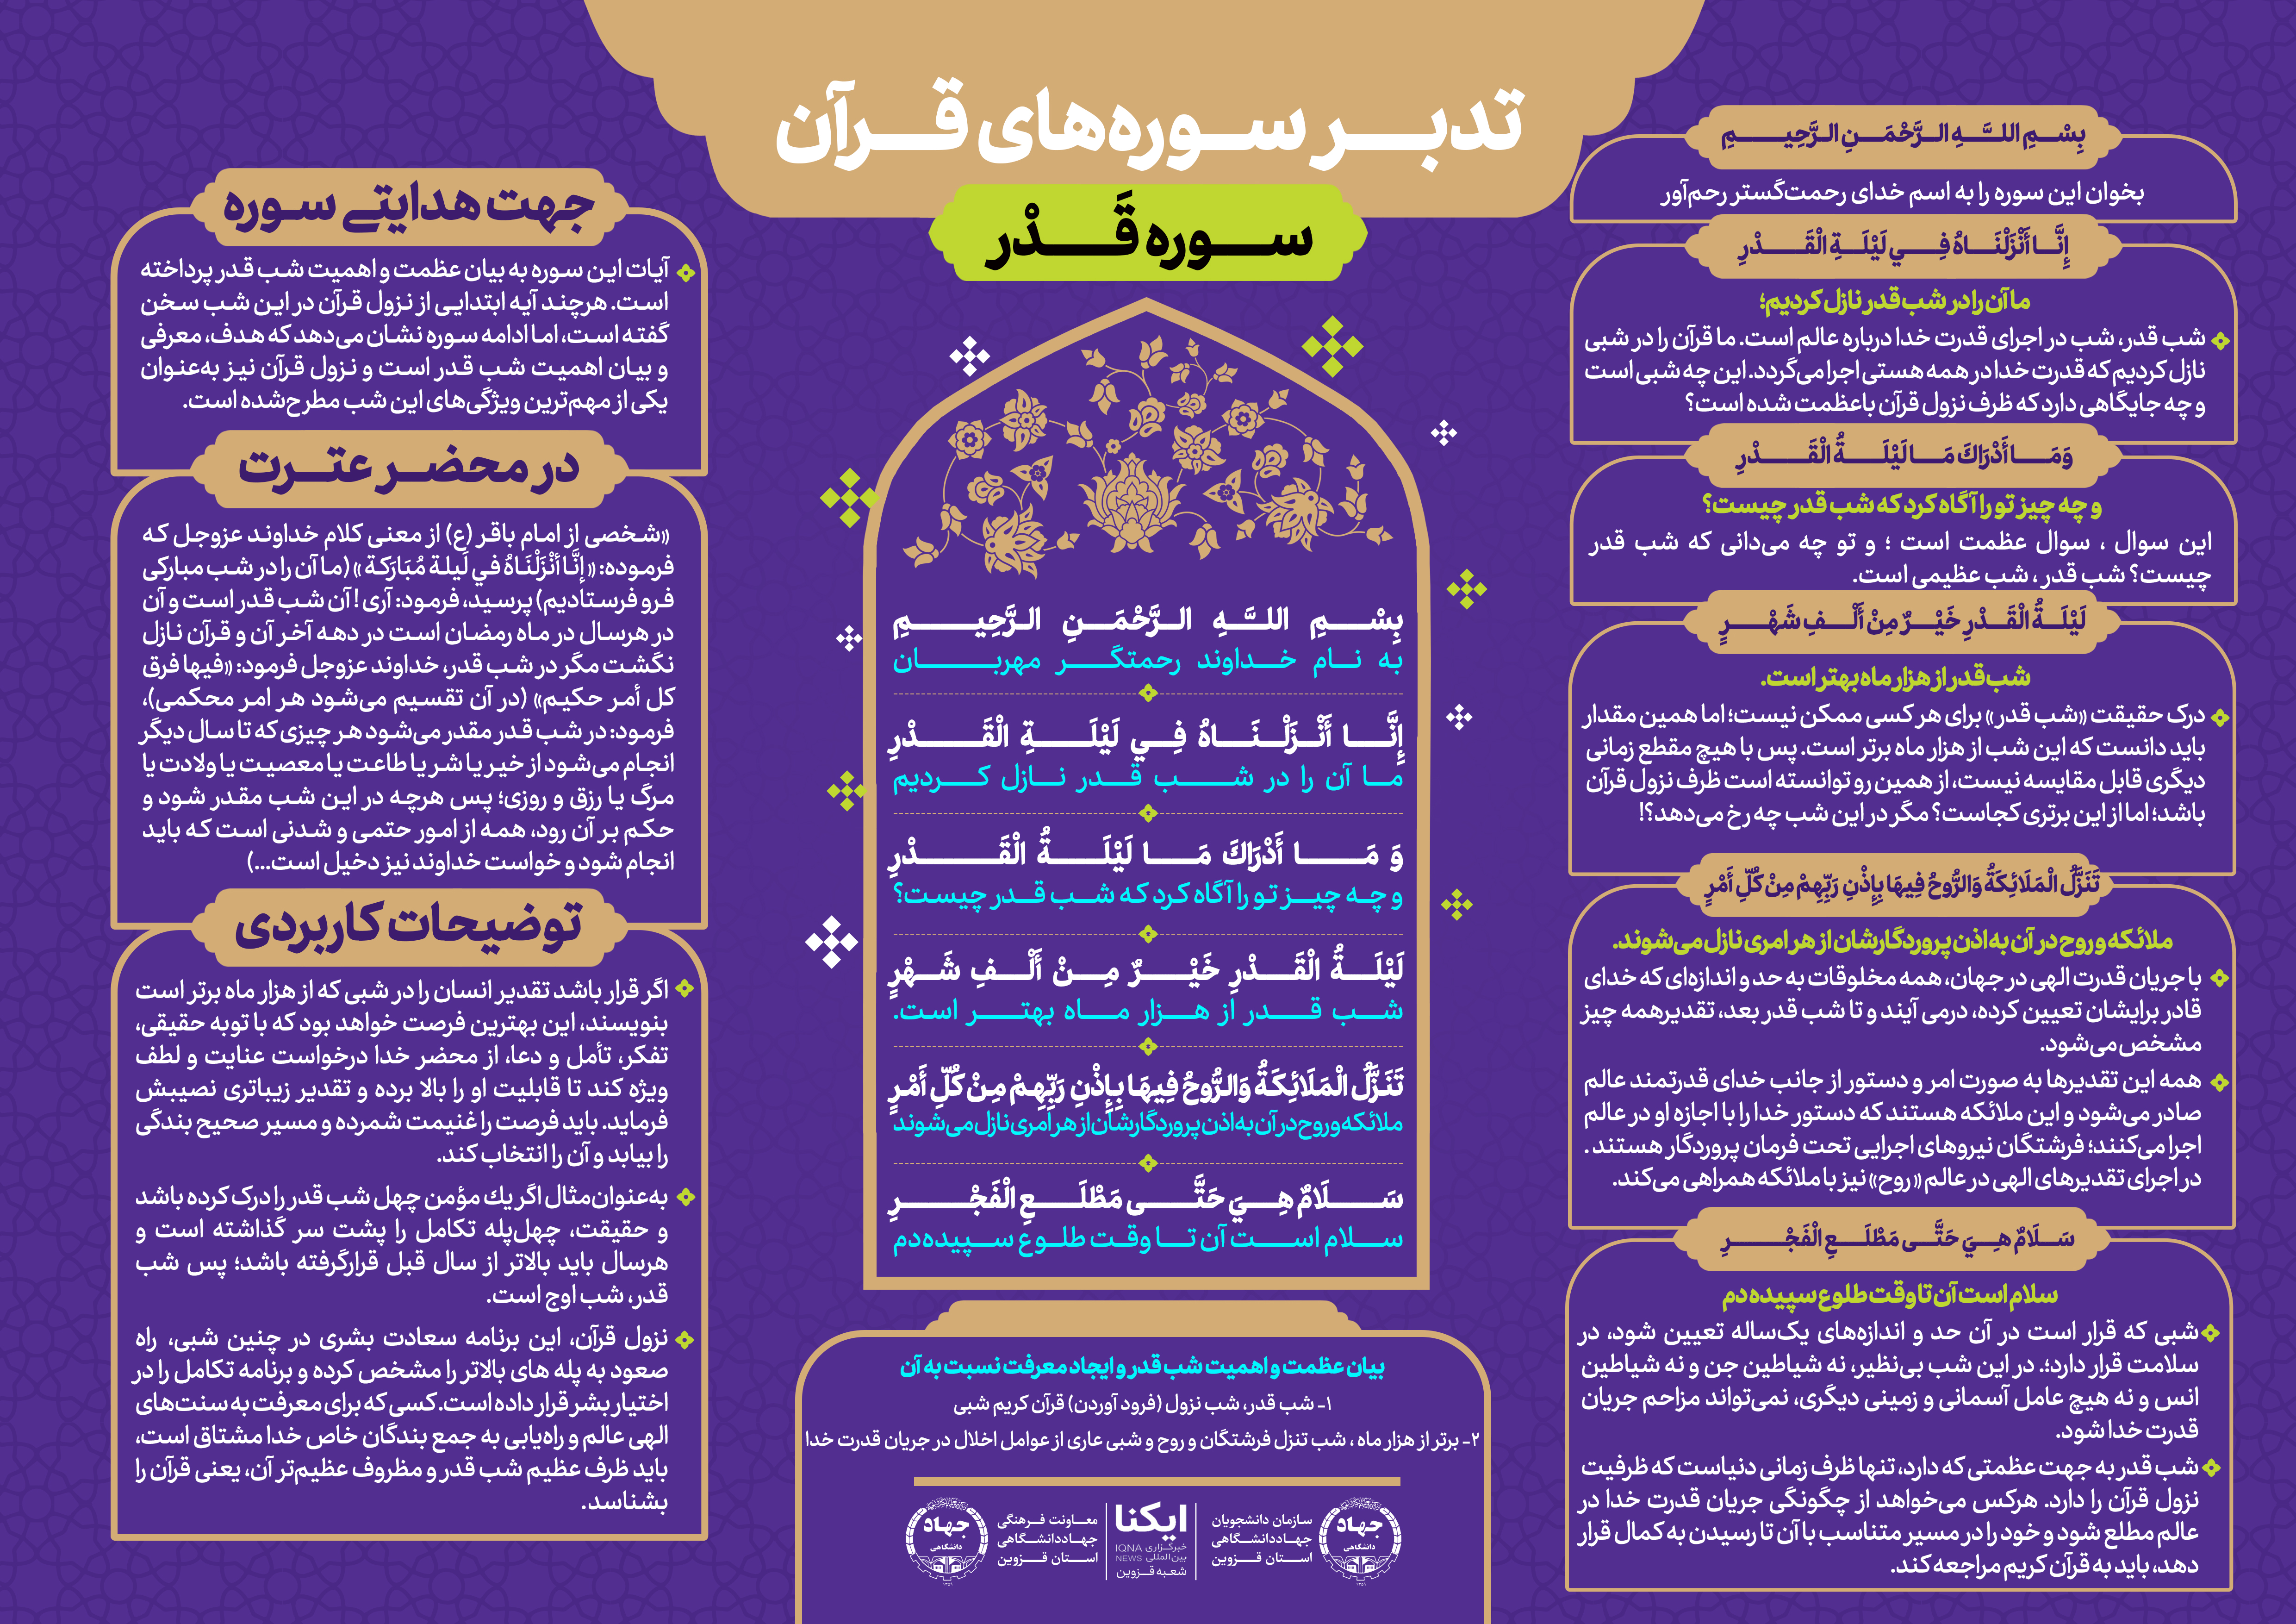 تدبر سوره‌های قرآن
سوره قَدْر
بِسْمِ اللَّهِ الرَّحْمَنِ الرَّحِيمِ
بخوان این سوره را به اسم خدای رحمت‌گستر رحم‌آور
إِنَّا أَنْزَلْنَاهُ فِي لَيْلَةِ الْقَدْرِ
ما آن را در شب قدر نازل کردیم؛
شب قدر، شب در اجرای قدرت خدا درباره عالم است. ما قرآن را در شبی
نازل کردیم که قدرت خدا در همه هستی اجرا می‌گردد. این چه شبی است
و چه جایگاهی دارد که ظرف نزول قرآن باعظمت شده است؟
وَمَا أَدْرَاكَ مَا لَيْلَةُ الْقَدْرِ
و چه چیز تو را آگاه کرد که شب قدر چیست؟
این سوال ، سوال عظمت است ؛ و تو چه می‌دانی که شب قدر
چیست؟ شب قدر ، شب عظیمی است.
لَيْلَةُ الْقَدْرِ خَيْرٌ مِنْ أَلْفِ شَهْرٍ
شب قدر از هزار ماه بهتر است.
درک حقیقت «شب قدر» برای هر کسی ممکن نیست؛ اما همین مقدار
باید دانست که این شب از هزار ماه برتر است. پس با هیچ مقطع زمانی
دیگری قابل مقایسه نیست، از همین رو توانسته است ظرف نزول قرآن
باشد؛ اما از این برتری کجاست؟ مگر در این شب چه رخ می‌دهد؟!
تَنَزَّلُ الْمَلَائِكَةُ وَالرُّوحُ فِيهَا بِإِذْنِ رَبِّهِمْ مِنْ كُلِّ أَمْرٍ
ملائکه و روح در آن به اذن پروردگارشان از هر امری نازل می‌شوند.
با جریان قدرت الهی در جهان، همه مخلوقات به حد و اندازه‌ای که خدای
قادر برایشان تعیین کرده، درمی آیند و تا شب قدر بعد، تقدیرهمه چیز
مشخص می‌شود.
همه این تقدیرها به صورت امر و دستور از جانب خدای قدرتمند عالم
صادر می‌شود و این ملائکه هستند که دستور خدا را با اجازه او در عالم
اجرا می‌کنند؛ فرشتگان نیروهای اجرایی تحت فرمان پروردگار هستند .
در اجرای تقدیرهای الهی در عالم «روح» نیز با ملائکه همراهی می‌کند.
سَلَامٌ هِيَ حَتَّى مَطْلَعِ الْفَجْرِ
سلام است آن تا وقت طلوع سپیده دم
شبی که قرار است در آن حد و اندازه‌های یک‌ساله تعیین شود، در
سلامت قرار دارد؛. در این شب بی‌نظیر، نه شیاطین جن و نه شیاطین
انس و نه هیچ عامل آسمانی و زمینی دیگری، نمی‌تواند مزاحم جریان
قدرت خدا شود.
شب قدر به جهت عظمتی که دارد، تنها ظرف زمانی دنیاست که ظرفیت
نزول قرآن را دارد. هرکس می‌خواهد از چگونگی جریان قدرت خدا در
عالم مطلع شود و خود را در مسیر متناسب با آن تا رسیدن به کمال قرار
دهد، باید به قرآن کریم مراجعه کند.
بِسْمِ اللَّهِ الرَّحْمَنِ الرَّحِيمِ
به نام خداوند رحمتگر مهربان
إِنَّا أَنْزَلْنَاهُ فِي لَيْلَةِ الْقَدْرِ
ما آن را در شب قدر نازل کردیم
وَ مَا أَدْرَاكَ مَا لَيْلَةُ الْقَدْرِ
و چه چیز تو را آگاه کرد که شب قدر چیست؟
لَيْلَةُ الْقَدْرِ خَيْرٌ مِنْ أَلْفِ شَهْرٍ
شب قدر از هزار ماه بهتر است.
تَنَزَّلُ الْمَلَائِكَةُ وَالرُّوحُ فِيهَا بِإِذْنِ رَبِّهِمْ مِنْ كُلِّ أَمْرٍ
ملائکه و روح در آن به اذن پروردگارشان از هر امری نازل می‌شوند
سَلَامٌ هِيَ حَتَّى مَطْلَعِ الْفَجْرِ
سلام است آن تا وقت طلوع سپیده دم
بیان عظمت و اهمیت شب قدر و ایجاد معرفت نسبت به آن
۱- شب قدر، شب نزول (فرود آوردن) قرآن کریم شبی
۲- برتر از هزار ماه ، شب تنزل فرشتگان و روح و شبی عاری از عوامل اخلال در جریان قدرت خدا
جهاد
دانشگاهی
۱۳۵۹
سازمان دانشجویان
جهاددانشگاهی
استان قزوین
ایکنا
خبرگزاری IQNA
بین‌المللی NEWS
شعبه قزوین
معاونت فرهنگی
جهاددانشگاهی
استان قزوین
جهاد
دانشگاهی
۱۳۵۹
جهت هدایتی سوره
آیات این سوره به بیان عظمت و اهمیت شب قدر پرداخته
است. هرچند آیه ابتدایی از نزول قرآن در این شب سخن
گفته است، اما ادامه سوره نشان می‌دهد که هدف، معرفی
و بیان اهمیت شب قدر است و نزول قرآن نیز به‌عنوان
یکی از مهم‌ترین ویژگی‌های این شب مطرح‌شده است.
در محضر عترت
«شخصی از امام باقر (ع) از معنی کلام خداوند عزوجل که
فرموده: «إِنَّا أَنْزَلْنَاهُ في لَیلة مُبَارَکة » (ما آن را در شب مبارکی
فرو فرستادیم) پرسید، فرمود: آری ! آن شب قدر است و آن
در هرسال در ماه رمضان است در دهه آخر آن و قرآن نازل
نگشت مگر در شب قدر، خداوند عزوجل فرمود: «فیها فرق
کل أمر حکیم» (در آن تقسیم می‌شود هر امر محکمی)،
فرمود: در شب قدر مقدر می‌شود هر چیزی که تا سال دیگر
انجام می‌شود از خیر یا شر یا طاعت یا معصیت یا ولادت یا
مرگ یا رزق و روزی؛ پس هرچه در این شب مقدر شود و
حکم بر آن رود، همه از امور حتمی و شدنی است که باید
انجام شود و خواست خداوند نیز دخیل است...)
توضیحات کاربردی
اگر قرار باشد تقدیر انسان را در شبی که از هزار ماه برتر است
بنویسند، این بهترین فرصت خواهد بود که با توبه حقیقی،
تفکر، تأمل و دعا، از محضر خدا درخواست عنایت و لطف
ویژه کند تا قابلیت او را بالا برده و تقدیر زیباتری نصیبش
فرماید. باید فرصت را غنیمت شمرده و مسیر صحیح بندگی
را بیابد و آن را انتخاب کند.
به‌عنوان‌مثال اگر یك مؤمن چهل شب قدر را درک کرده باشد
و حقیقت، چهل‌پله تکامل را پشت سر گذاشته است و
هرسال باید بالاتر از سال قبل قرارگرفته باشد؛ پس شب
قدر، شب اوج است.
نزول قرآن، این برنامه سعادت بشری در چنین شبی، راه
صعود به پله های بالاتر را مشخص کرده و برنامه تکامل را در
اختیار بشر قرار داده است. کسی که برای معرفت به سنت‌های
الهی عالم و راه‌یابی به جمع بندگان خاص خدا مشتاق است،
باید ظرف عظیم شب قدر و مظروف عظیم‌تر آن، یعنی قرآن را
بشناسد.